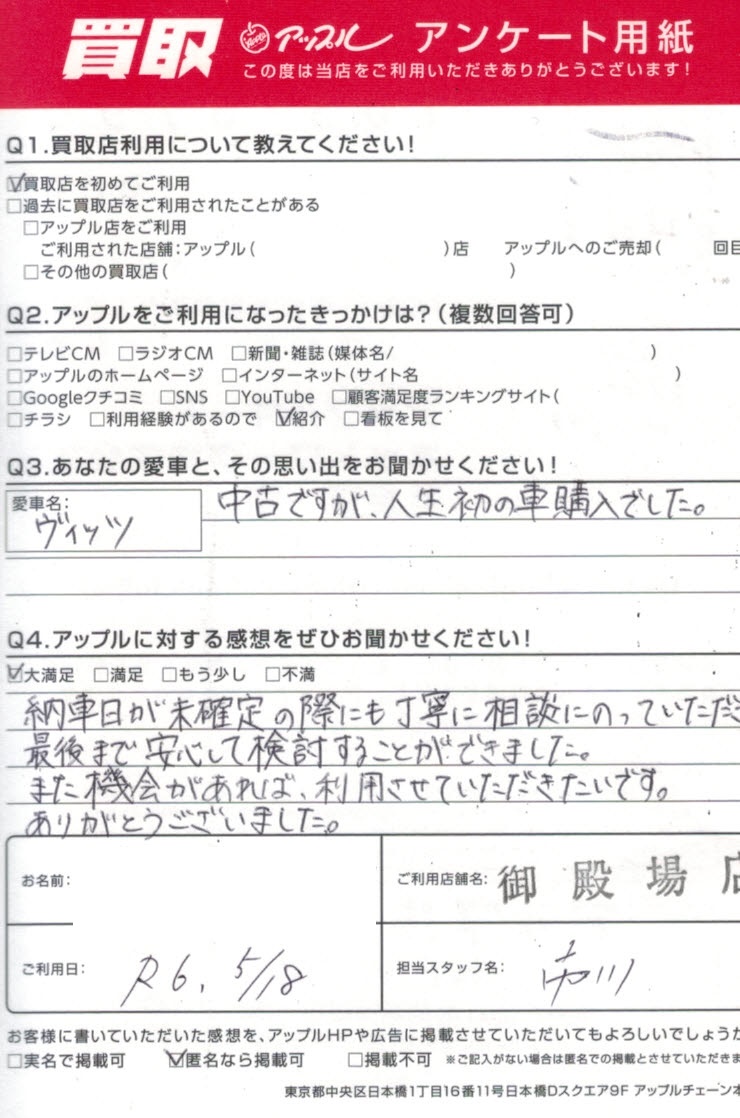 買取 アップル アンケート用紙
この度は当店をご利用いただきありがとうございます!
Q1.買取店利用について教えてください!
☑買取店を初めてご利用
□過去に買取店をご利用されたことがある
□アップル店をご利用
ご利用された店舗:アップル( )店 アップルへのご売却( 回目
□その他の買取店( )
Q2.アップルをご利用になったきっかけは?(複数回答可)
□テレビCM □ラジオCM □新聞・雑誌(媒体名/ )
□アップルのホームページ □インターネット(サイト名 )
□Googleクチコミ □SNS □YouTube □顧客満足度ランキングサイト(
□チラシ □利用経験があるので ☑紹介 □看板を見て
Q3.あなたの愛車と、その思い出をお聞かせください!
愛車名: 中古ですが、人生初の車購入でした。
ヴィッツ
Q4.アップルに対する感想をぜひお聞かせください!
☑大満足 □満足 □もう少し □不満
納車日が未確定の際にも丁寧に相談にのっていただき
最後まで安心して検討することができました。
また機会があれば、利用させていただきたいです。
ありがとうございました。
お名前: ご利用店舗名: 御殿場店
ご利用日: R6. 5/18 担当スタッフ名: 市川
お客様に書いていただいた感想を、アップルHPや広告に掲載させていただいてもよろしいでしょうか
□実名で掲載可 ☑匿名なら掲載可 □掲載不可 ※ご記入がない場合は匿名での掲載とさせていただきま
東京都中央区日本橋1丁目16番11号日本橋Dスクエア9F アップルチェーン本